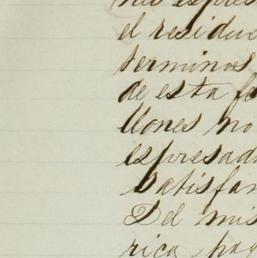 el residue
terminos
de esta fe
llones no
espresad
satisfa
Del mis
rica pag